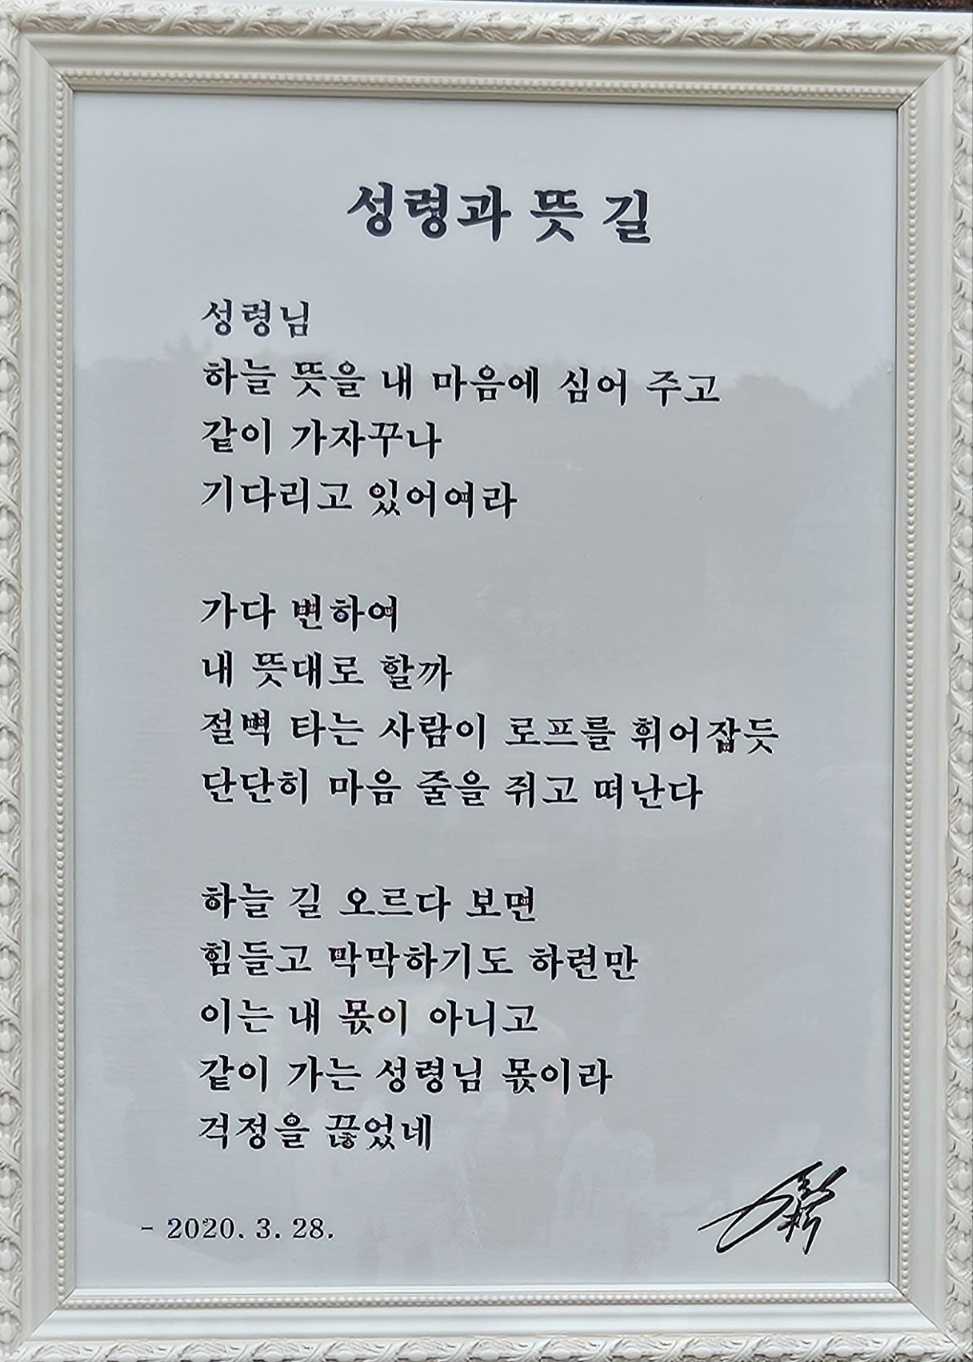 성령과 뜻 길
성령님
하늘 뜻을 내 마음에 심어 주고
같이 가자꾸나
기다리고 있어여라
가다 변하여
내 뜻대로 할까
절벽 타는 사람이 로프를 휘어잡듯
단단히 마음 줄을 쥐고 떠난다
하늘 길 오르다 보면
힘들고 막막하기도 하련만
이는 내 몫이 아니고
같이 가는 성령님 몫이라
걱정을 끊었네
- 2020. 3. 28.